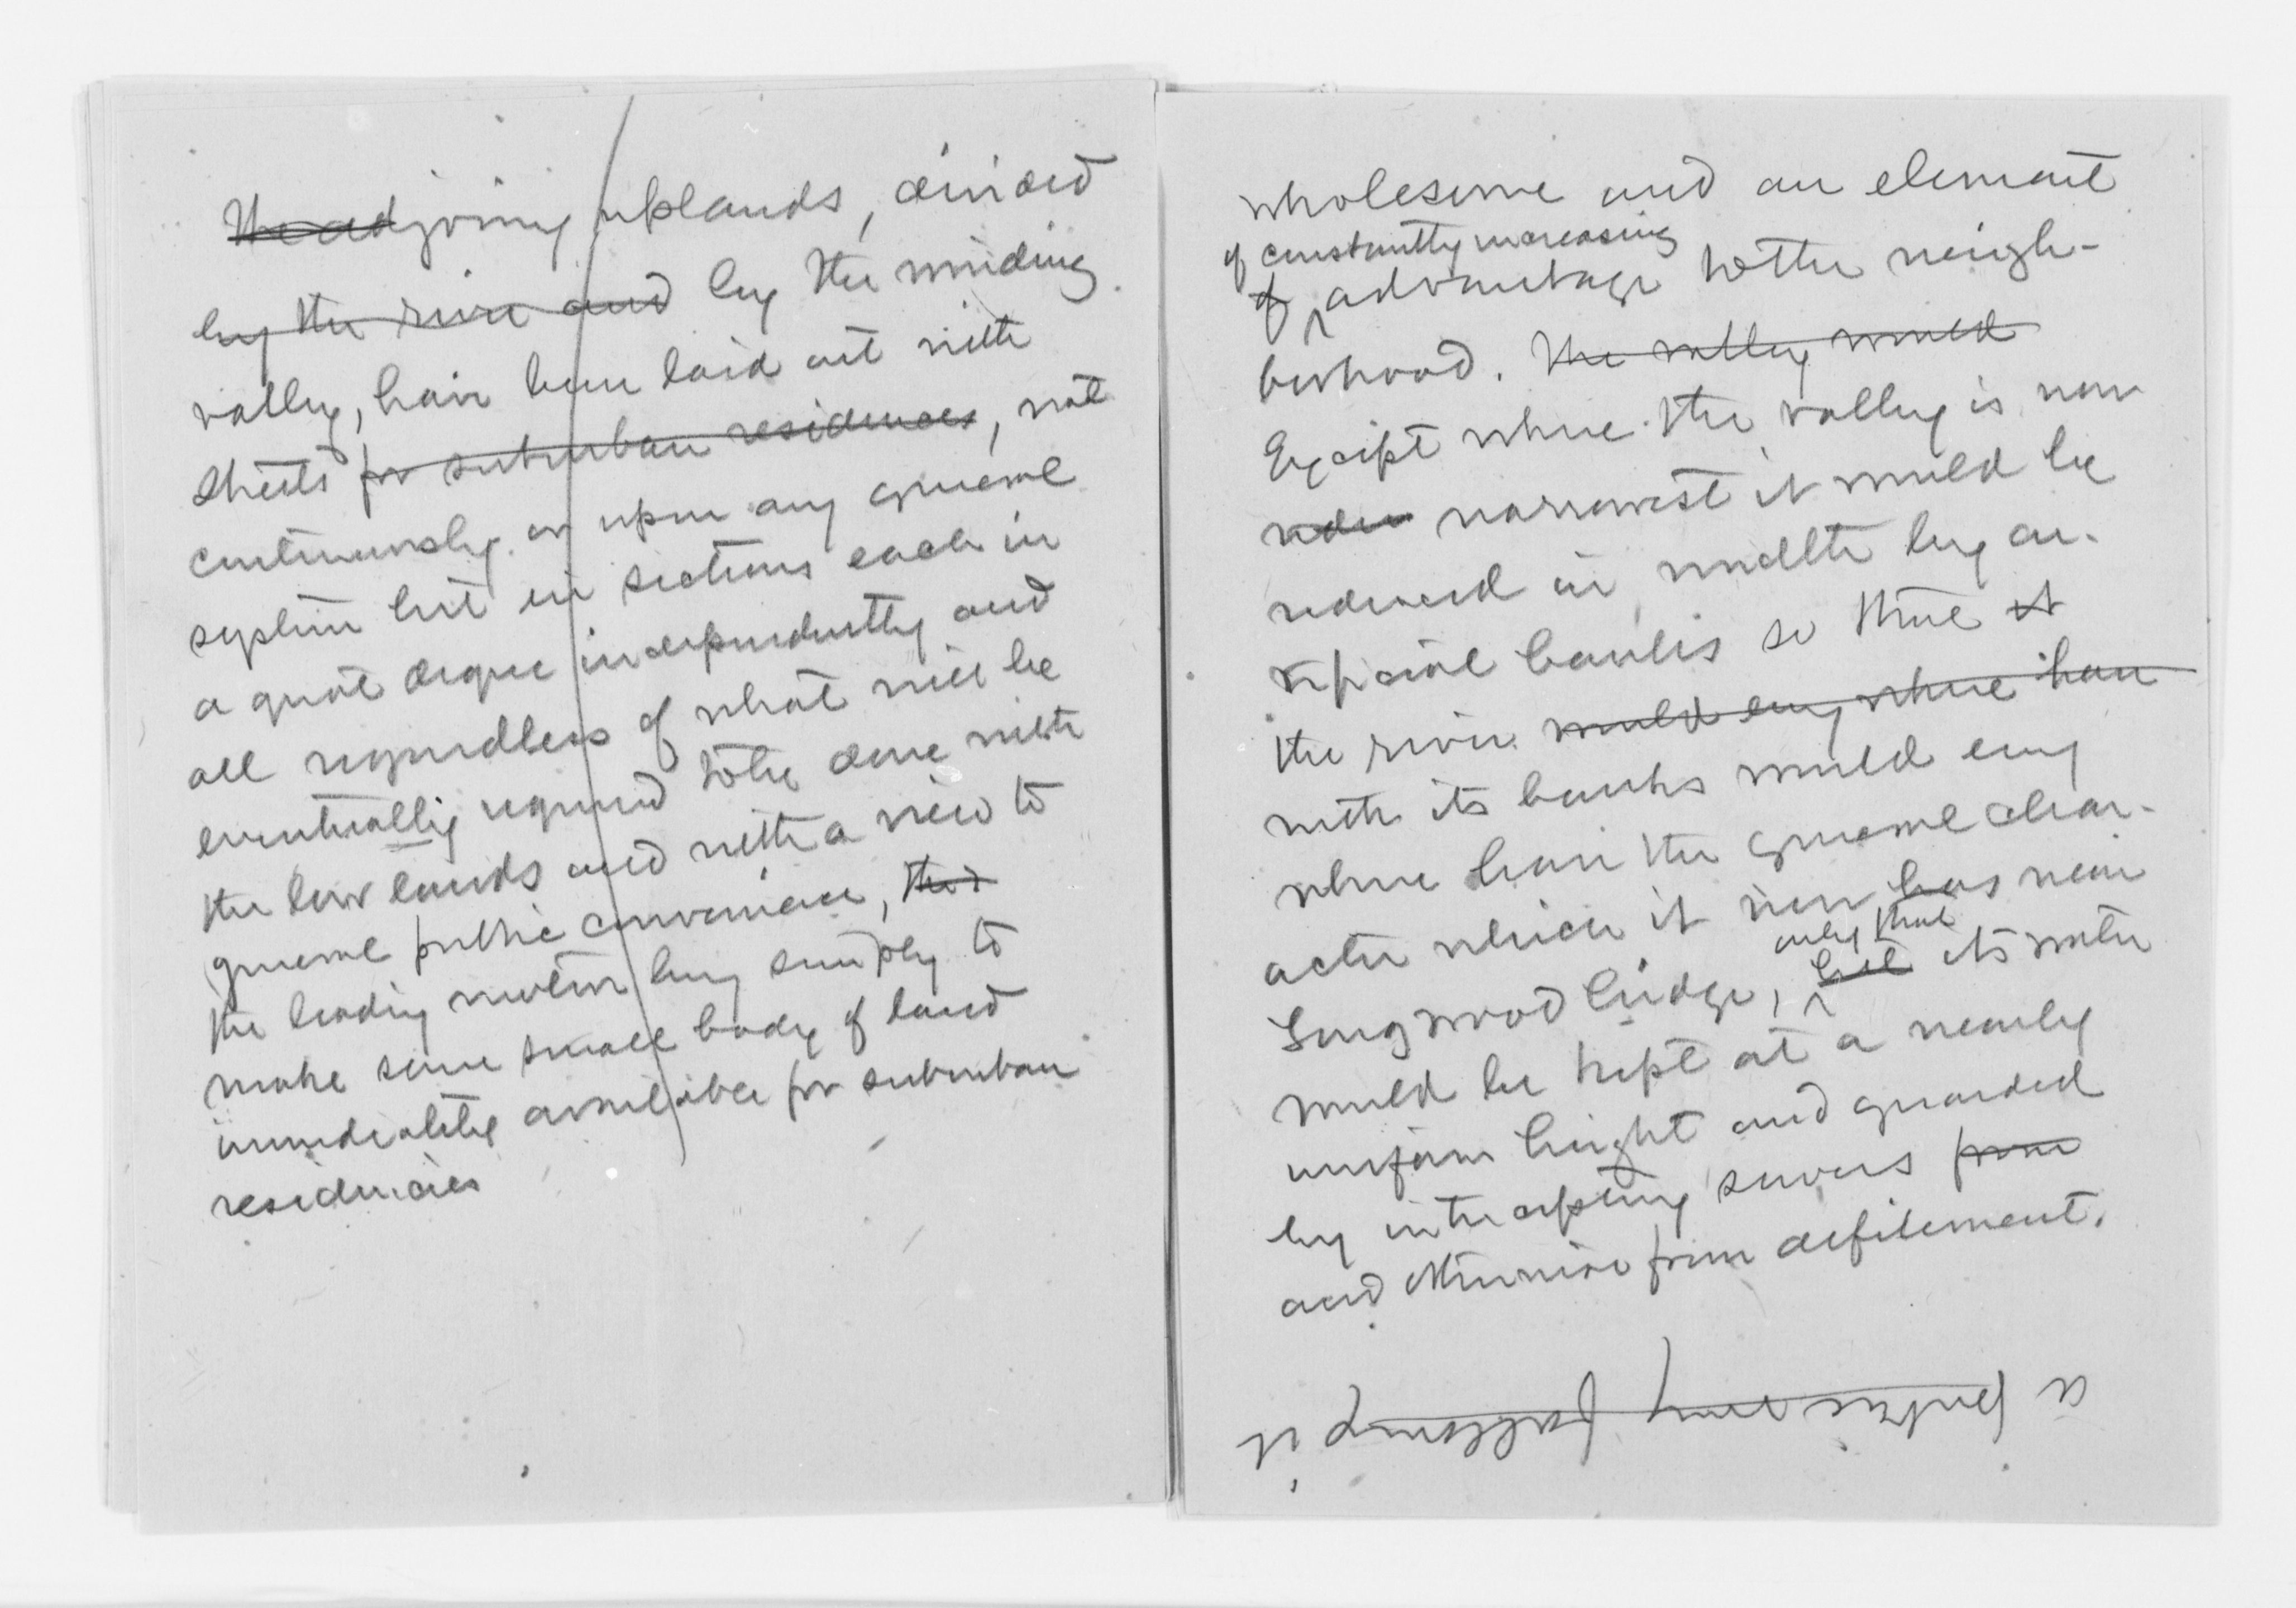 The adjoining uplands, divided
by the river and by the winding
valley, have been laid out with
streets for suburban residences, not
continuously or upon any general
system but in sections each in
a great degree independently and
all regardless of what will be
eventually required to be done with
the low lands and with a view to
general public convenience, the
the leading motive being simply to
make some small body of land
immediately available for suburban
residences
wholesome and an element
of constantly increasing
of advantage to the neigh-
borhood. The valley would
Except where the valley is now
narrowest it would be
reduced in width by ar-
tificial banks so that it
the river would any where have
with its banks would any
where have the general char-
acter which it now has near
only that
Longwood bridge, but its water
would be kept at a nearly
uniform height and guarded
by intercepting sewers from
and otherwise from defilement.